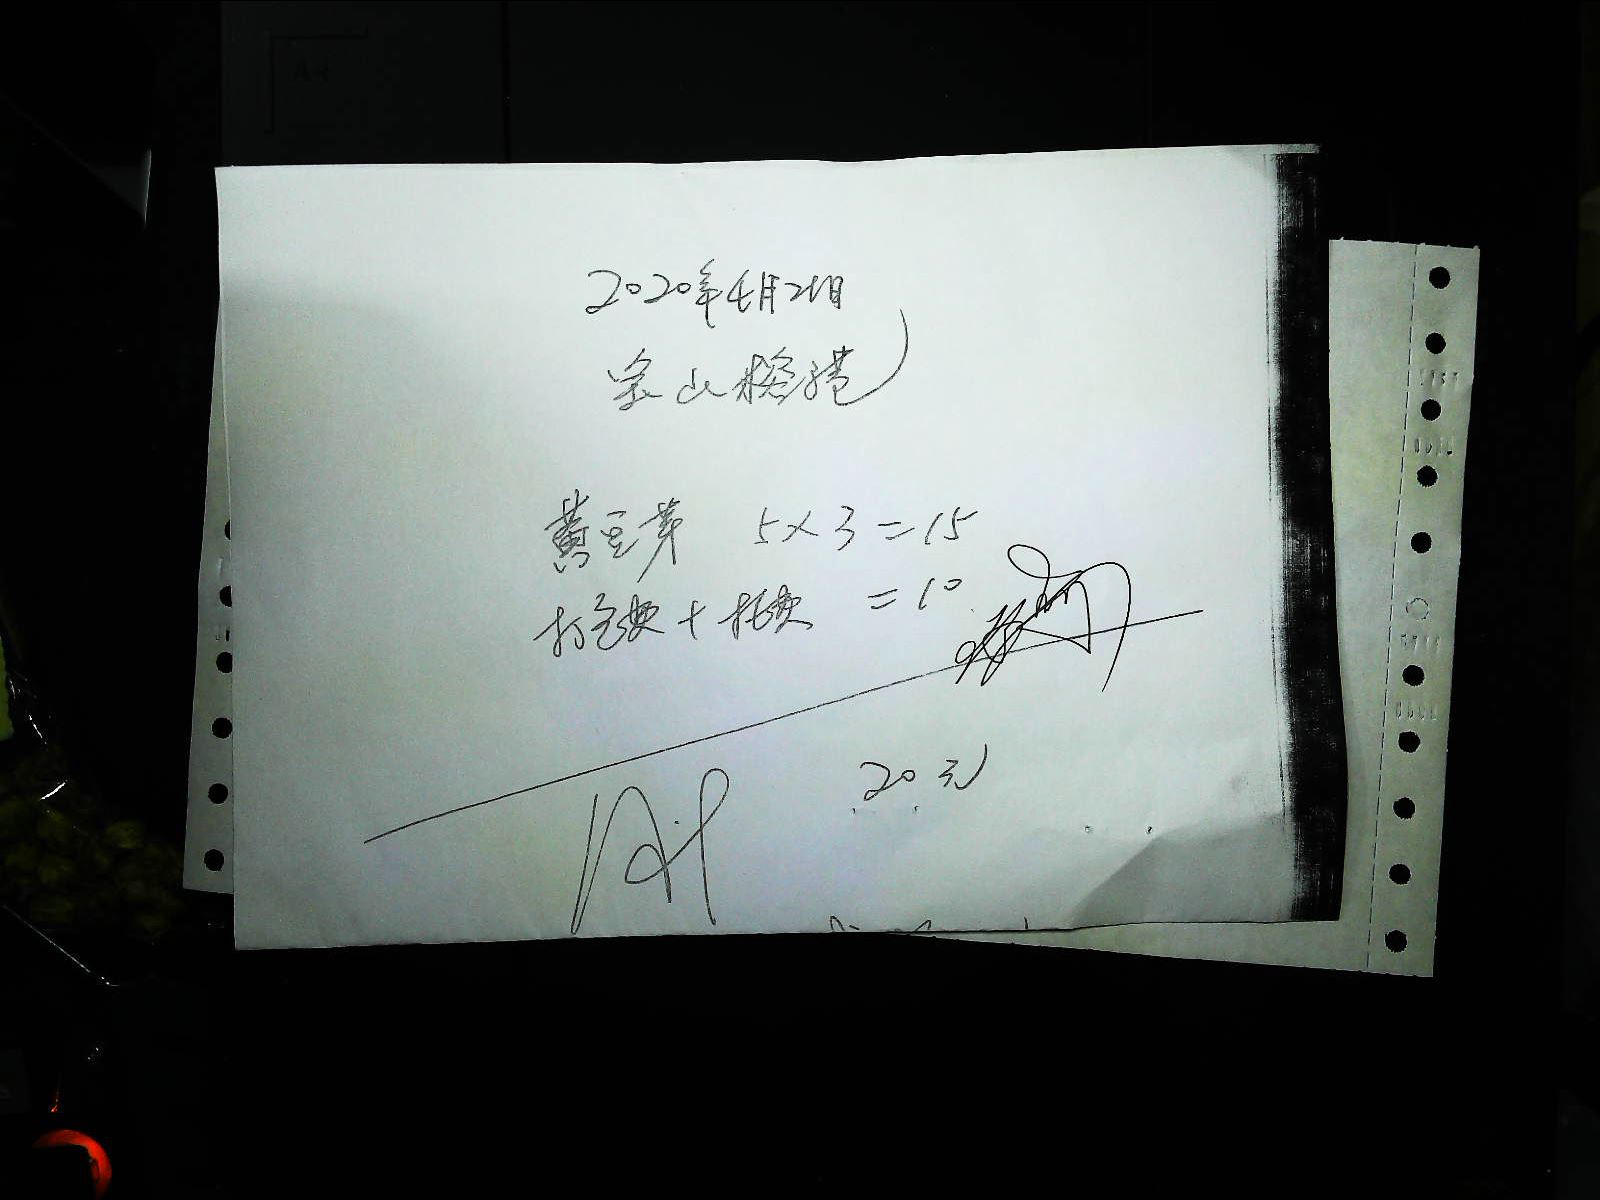 2020年4月21日
象山
黄豆芽 5×3=15
打包费+托费 =10
20元